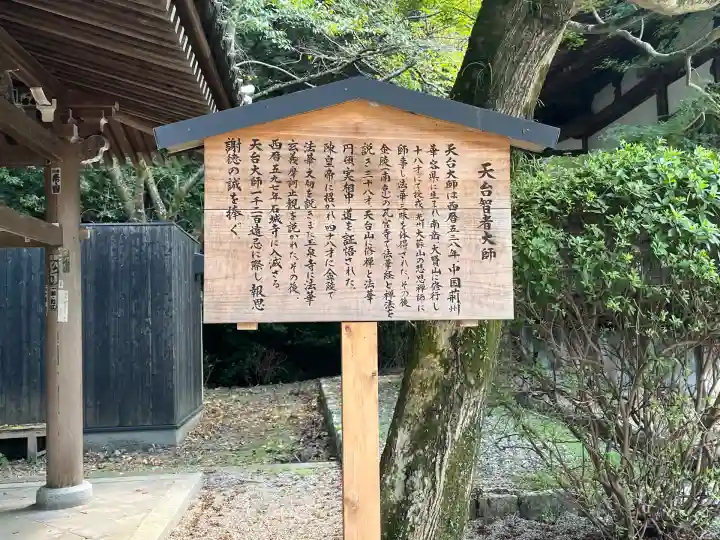 天台智者大師
天台大師は西暦五三八年、中国荊州
華容県に生まれ南岳・大賢山に修行し
十八才にて出家、光州大蘇山の慧思禅師に
師事し法華三昧を体得された。その後
金陵(南京)の瓦官寺で法華経と禅法を
説き三十八才天台山に修禅と法華
円頓実相中道を証悟された。
陳皇帝に招かれ四十八才に金陵で
法華文句を説きまた玉泉寺に法華
玄義摩訶止観を説かれた。その後、
西暦五九七年石城寺に入滅さる。
天台大師一千四百遠忌に際し報恩
謝徳の誠を捧ぐ。